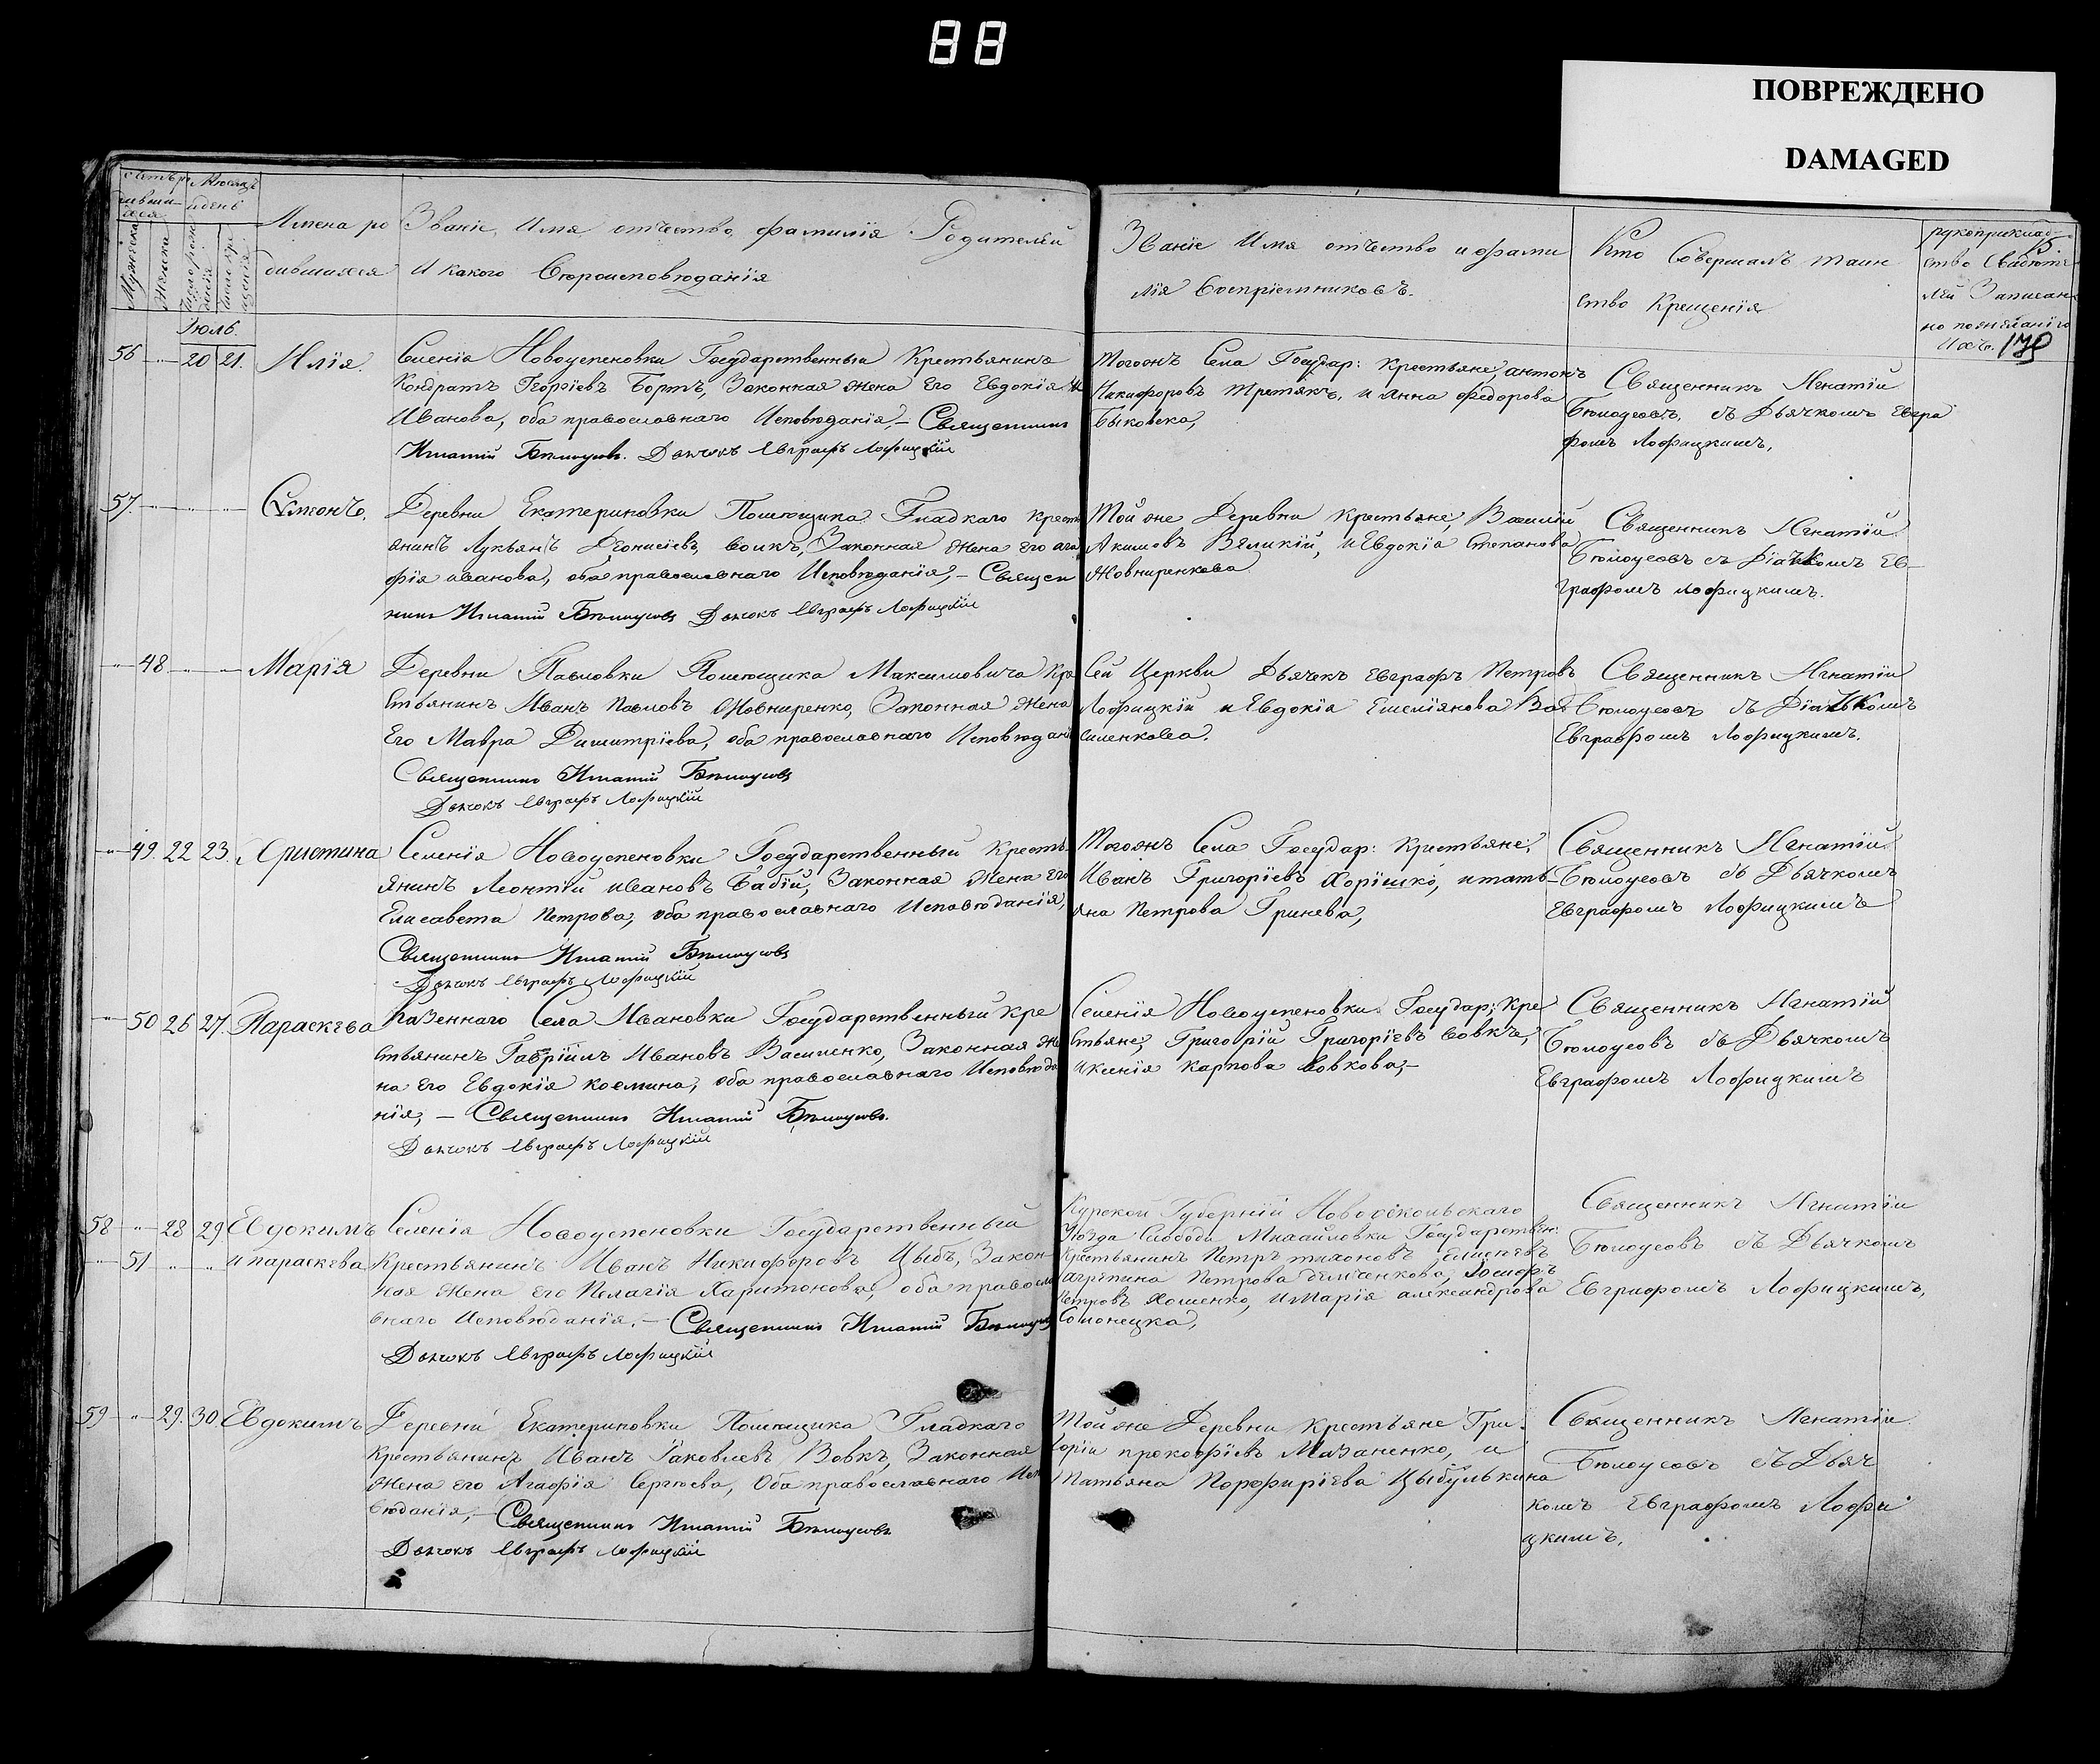 88
ПОВРЕЖДЕНО
DAMAGED
Мужеска
Женска
Имена ро
дившихся
Званіе, Имя отчество, фамилія Родителей
И какого Вѣроисповѣданія
Званіе Имя отчество и фами
лія Воспріемниковъ.
Кто Совершалъ таин
ство Крещенія
рукоприклад-
ство Свидѣте-
лей Записан-
170
Іюль.
56 20 21. Илія.
Селенія Новоуспеновки Государственный Крестьянинъ
Кондратъ Георгіевъ Бортъ, Законная жена Его Евдокія
Иванова, оба православнаго Исповѣданія, – Священникъ
Игнатій Бѣлоусовъ. Дьячокъ Евграфъ Лофицкій
Тогожъ Села Государ: Крестьяне, антонъ
Никифоровъ Третякъ, и Анна Федорова
Быковска,
Священникъ Игнатій
Бѣлоусовъ, съ Дьячкомъ Евгра
фомъ Лофицкимъ,
57. Симонъ.
Деревни Екатериновки Помѣщика Гладкаго крест
янинъ Лукьянъ Деонисіевъ, вовкъ, Законная жена его ага
фія иванова, оба православнаго Исповѣданія, – Священ
никъ Игнатій Бѣлоусовъ Дьячокъ Евграфъ Лофицкій
Той же Деревни крестьяне, Василій
Акимовъ Великій, и Евдокія Степанова
Жовниренкова
Священникъ Игнатій
Бѣлоусовъ съ Діачкомъ Ев–
графомъ Лофицкимъ.
48 Марія
Деревни Павловки Помѣщика Максимовича Кре
стьянинъ Иванъ Павловъ Жовниренко, Законная жена
Его Мавра Димитріева, оба православнаго Исповѣдані
Священникъ Игнатій Бѣлоусовъ
Дьячокъ Евграфъ Лофицкій
Сей Церкви Дьячекъ Евграфъ Петровъ
Лофицкій и Евдокія Емеліянова Ва
силенкова.
Священникъ Игнатій
Бѣлоусовъ съ Діачкомъ
Евграфомъ Лофицкимъ.
49. 22 23. Христина
Селенія Новоуспеновки Государственный Крест
янинъ Леонтій ивановъ Бабій, Законная жена его
Елисавета Петрова, оба православнаго Исповѣданія,
Священникъ Игнатій Бѣлоусовъ
Дьячокъ Евграфъ Лофицкій
Тогожъ Села Государ: Крестьяне,
Иванъ Григоріевъ Хорішко, и тать–
яна Петрова Гринева,
Священникъ Игнатій
Бѣлоусовъ съ Дьячкомъ
Евграфомъ Лофицкимъ
50 26 27. Параскева
Казеннаго Села Ивановки Государственный кре
стьянинъ Гавріилъ Ивановъ Василенко, Законная же
на его Евдокія космина, оба православнаго Исповѣда
нія, – Священникъ Игнатій Бѣлоусовъ.
Дьячокъ Евграфъ Лофицкій
Селенія Новоуспеновки Государ: Кре
стьяне, Григорій Григоріевъ вовкъ,
и ксенія карпова вовкова, –
Священникъ Игнатій
Бѣлоусовъ съ Дьячкомъ
Евграфомъ Лофицкимъ
58 28 29 Евдокимъ
51 и параскева
Селенія Новоуспеновки Государственный
Крестьянинъ Иванъ Никифоровъ Цыбъ, Закон–
ная жена его Пелагія Харитонова, оба правосла
внаго Исповѣданія. – Священникъ Игнатій Бѣлоусовъ
Дьячокъ Евграфъ Лофицкій
Курской Губерніи Новооскольскаго
Уѣзда Слободи Михайловки Государствен:
Крестьянинъ Петръ тихоновъ
агрепина Петрова демченкова, Іосифъ
Петровъ Хоменко, и Марія александрова
Солонецка,
Священникъ Игнатій
Бѣлоусовъ съ Дьячкомъ
Евграфомъ Лофицкимъ,
59 29. 30 Евдокимъ
Деревни Екатериновки Помѣщика Гладкаго
крестьянинъ Иванъ Іаковлевъ Вовкъ, Законная
жена его Агафія Сергѣева, Оба православнаго Испо
вѣданія, – Священникъ Игнатій Бѣлоусовъ
Дьячокъ Евграфъ Лофицкій
Той же Деревни крестьяне Гри–
горій прокофіевъ Мазаненко, и
Татьяна Порфиріева Цыбулькина
Священникъ Игнатій
Бѣлоусовъ съ Дьяч
комъ Евграфомъ Лофи
цкимъ,